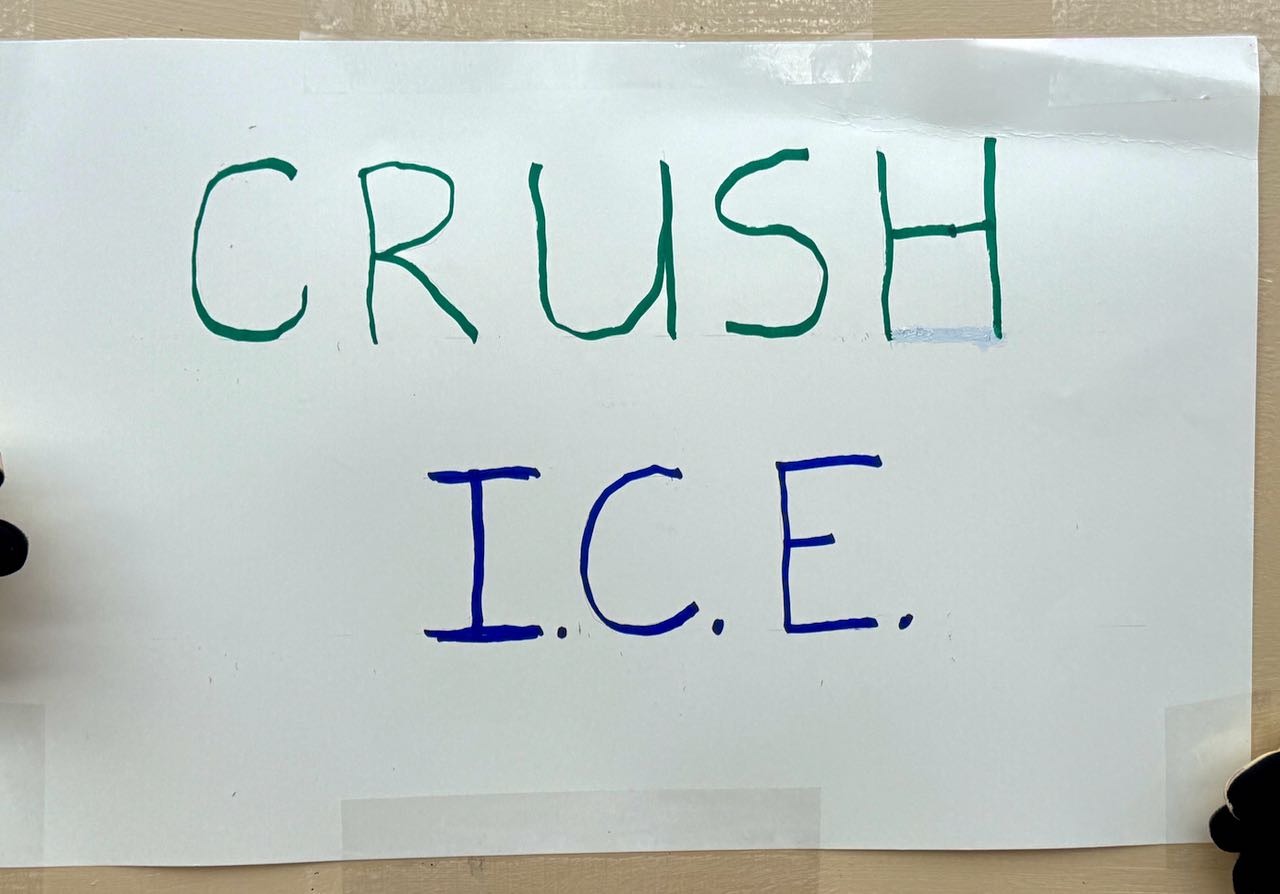 CRUSH
I.C.E.